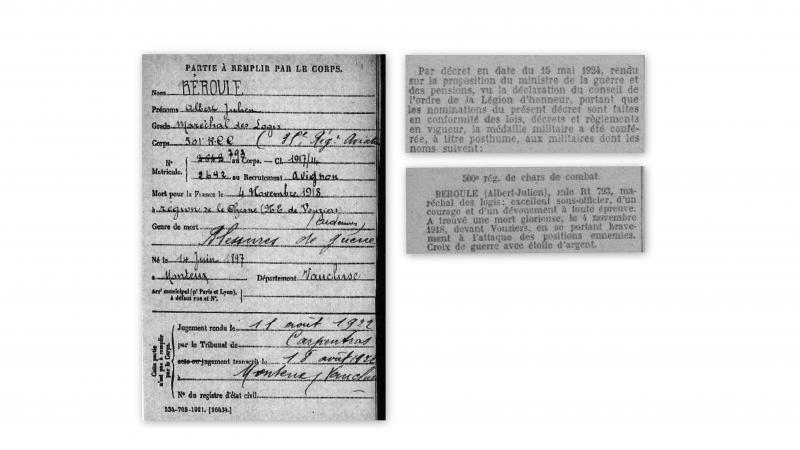 PARTIE À REMPLIR PAR LE CORPS.
Nom BÉROULE
Prénoms Albert Julien
Grade Maréchal des Logis
Corps 501e R.C.C. (
N° 793 au Corps. — Cl. 1917/
Matricule. 2642 au Recrutement Avignon
Mort pour la France le 4 Novembre 1918
à région de le Chesne (N.E. de Vouziers)
(Ardennes)
Genre de mort Blessures de guerre
Né le 14 Juin 1897
à Monteux Département Vaucluse
Arrt municipal (pr Paris et Lyon),
à défaut rue et N°.
Cette partie
n'est pas à remplir
par le Corps.
Jugement rendu le 11 août 1922
par le Tribunal de Carpentras
acte ou jugement transcrit le 18 août 192
à Monteux, Vaucluse
N° du registre d'état civil
534-708-1921. [26434.]
Par décret en date du 15 mai 1924, rendu
sur la proposition du ministre de la guerre et
des pensions, vu la déclaration du conseil de
l'ordre de la Légion d'honneur, portant que
les nominations du présent décret sont faites
en conformité des lois, décrets et règlements
en vigueur, la médaille militaire a été confé-
rée, à titre posthume, aux militaires dont les
noms suivent:
500e rég. de chars de combat.
BEROULE (Albert-Julien), mle Rt 793, ma-
réchal des logis: excellent sous-officier, d'un
courage et d'un dévouement à toute épreuve.
A trouvé une mort glorieuse, le 4 novembre
1918, devant Vouziers, en se portant brave-
ment à l'attaque des positions ennemies.
Croix de guerre avec étoile d'argent.